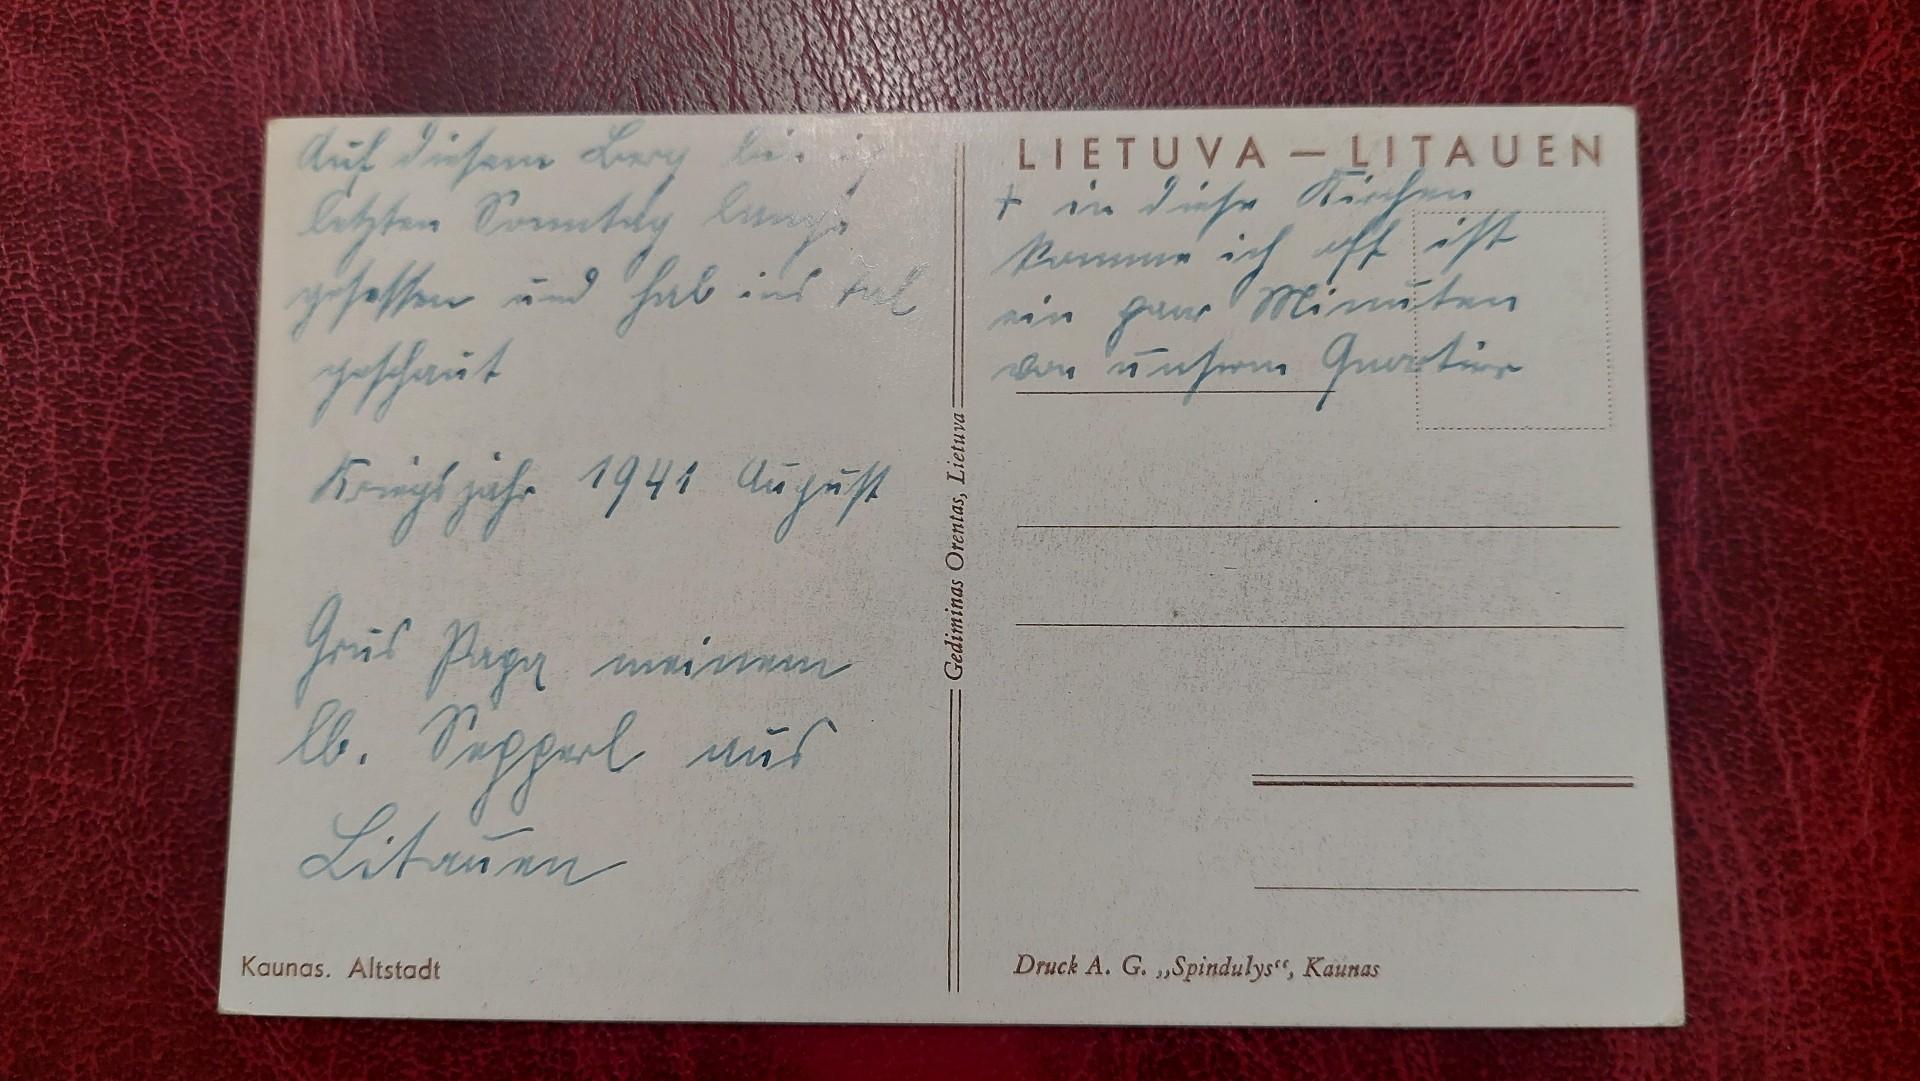 Auf diesem Berg bin ich
letzten Sonntag lange
gesessen und hab ins Tal
geschaut
Kriegsjahr 1941 August
Grus Papa meinem
lb. Sepperl aus
Litauen
Kaunas. Altstadt
Gediminas Orentas, Lietuva
LIETUVA — LITAUEN
+ in diese Kirchen
komme ich oft ist
ein paar Minuten
von unserm Quartier
Druck A. G. „Spindulys“, Kaunas